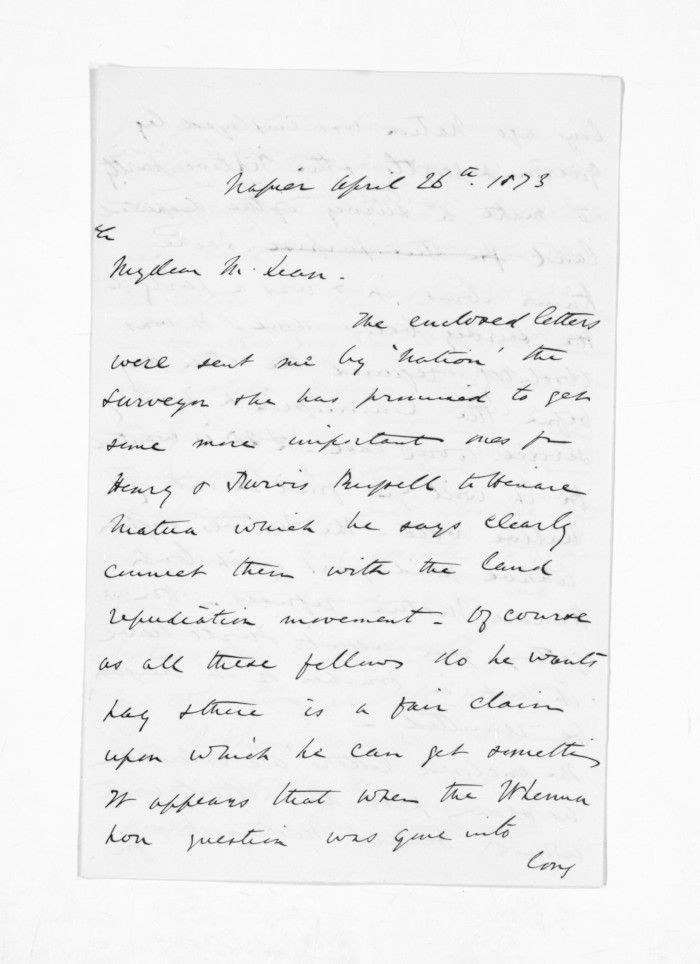 Napier April 26th. 1873
My dear McLean.
The enclosed letters
were sent me by "Nation" the
surveyor & he has promised to get
some more important ones fr
Henry & Purvis Russell to Henare
Matua which he says clearly
connect them with the land
repudiation movement - Of course
as all these fellows do he wants
pay & there is a fair claim
upon which he can get somethin
It appears that when the Whenua
hou question was gone into
long